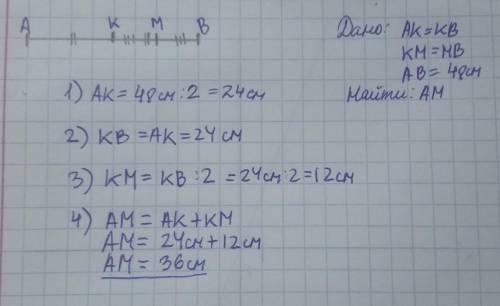 A K M B
Дано: AK=KB
KM=MB
AB=48см
Найти: AM
1) AK=48см:2=24см
2) KB=AK=24см
3) KM=KB:2=24см:2=12см
4) AM=AK+KM
AM=24см+12см
AM=36см